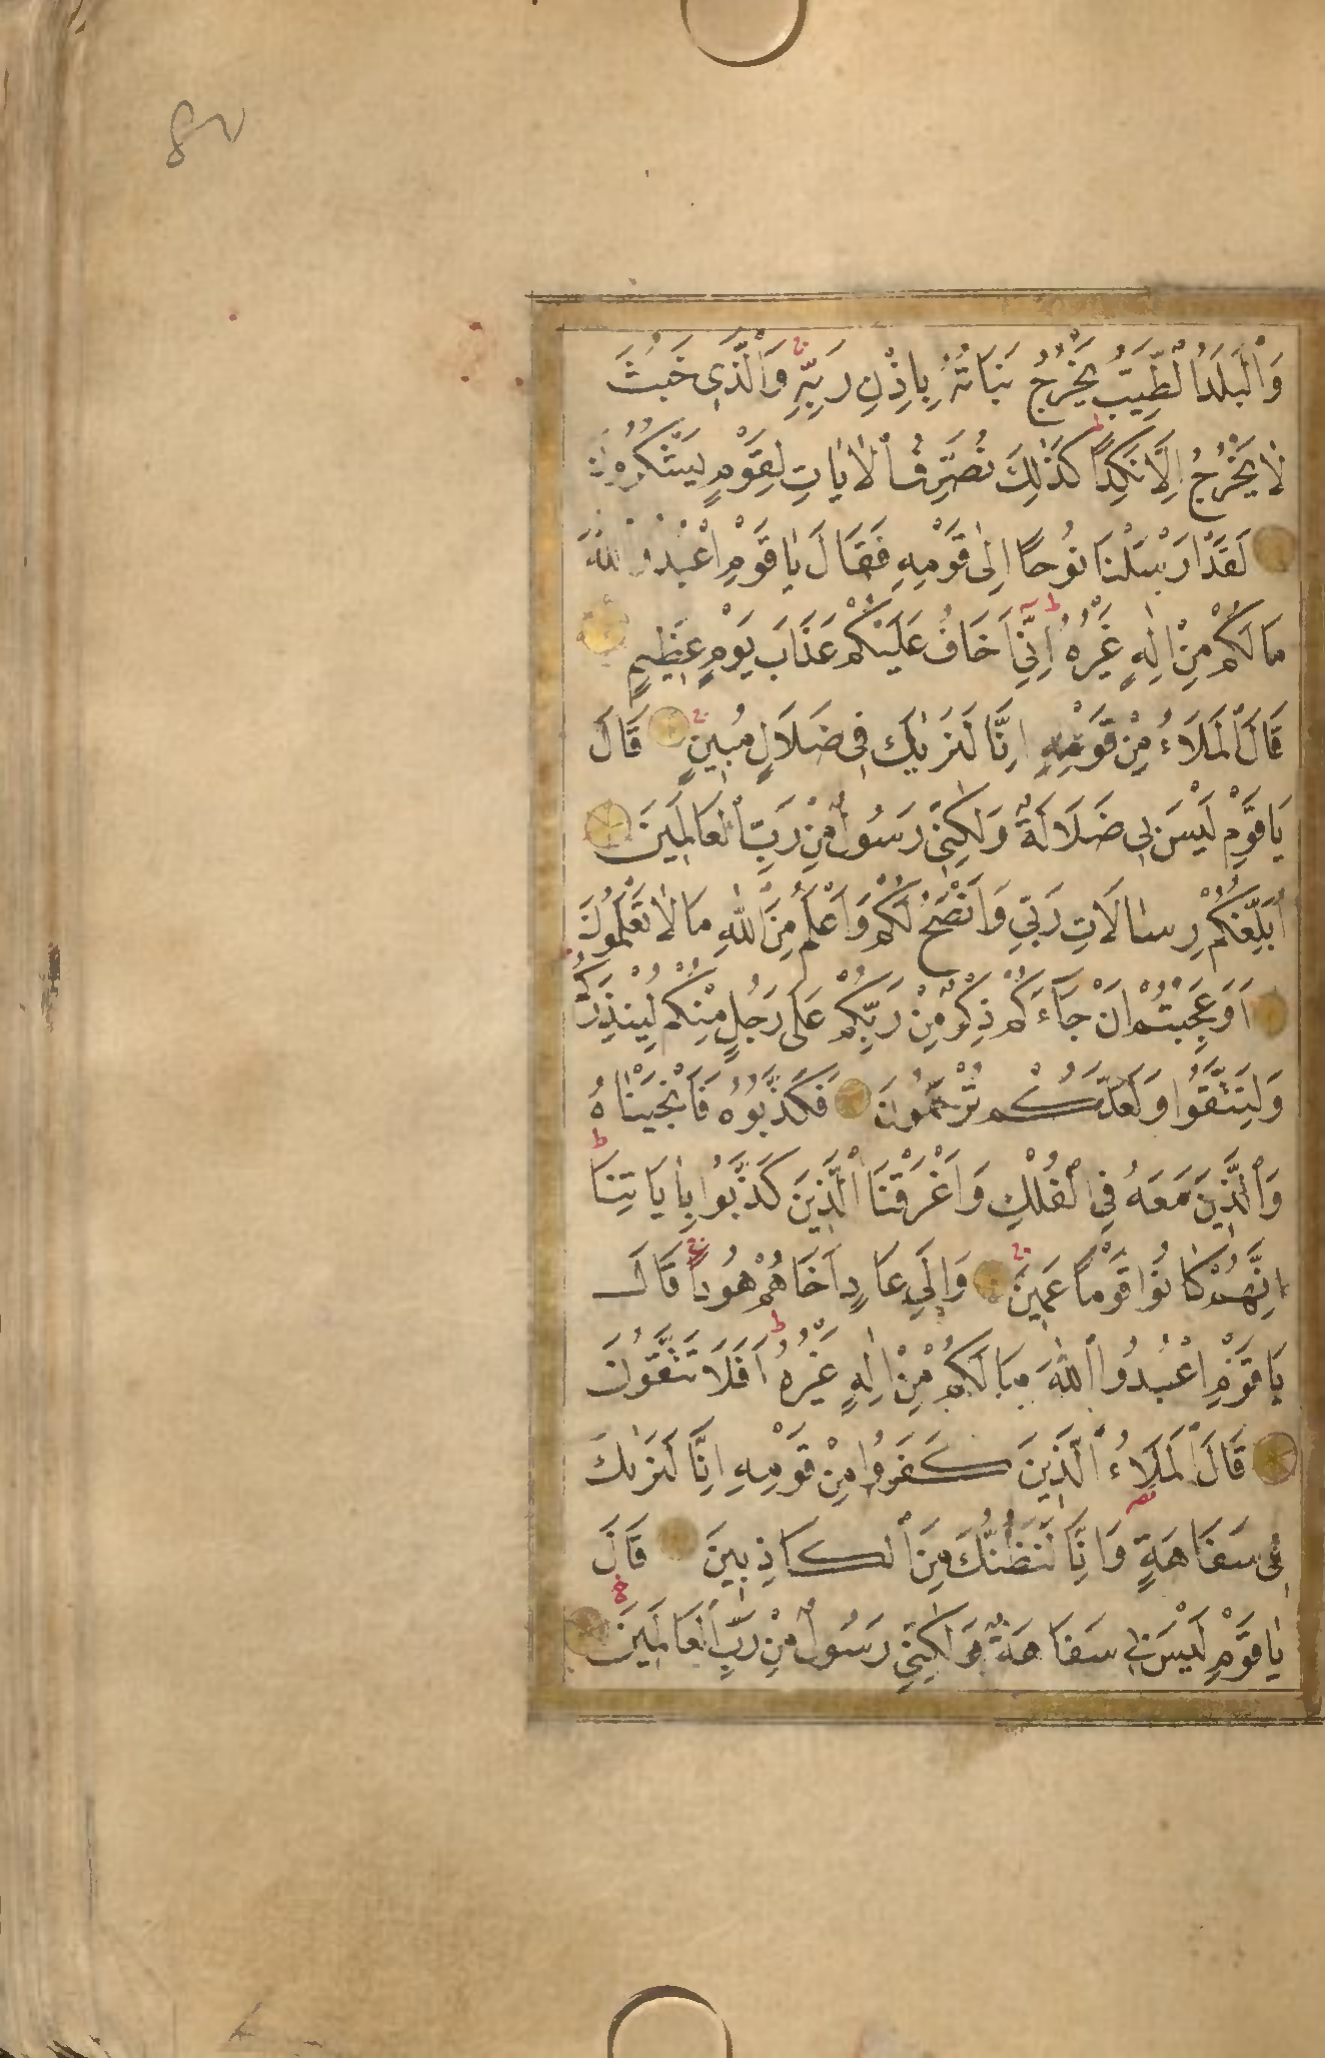 وَالْبَلَدُ الطَّيِّبُ يَخْرُجُ نَبَاتُهُ بِاِذْنِ رَبِّهِ وَالَّذِى خَبُثَ
لَا يَخْرُجُ اِلَّا نَكِدًا كَذٰلِكَ نُصَرِّفُ الْاٰيَاتِ لِقَوْمٍ يَشْكُرُونَ
لَقَدْ اَرْسَلْنَا نُوحًا اِلٰى قَوْمِهِ فَقَالَ يَا قَوْمِ اعْبُدُوا اللّٰهَ
مَا لَكُمْ مِنْ اِلٰهٍ غَيْرُهُ اِنِّى اَخَافُ عَلَيْكُمْ عَذَابَ يَوْمٍ عَظِيمٍ
قَالَ الْمَلَاءُ مِنْ قَوْمِهِ اِنَّا لَنَرٰيكَ فِى ضَلَالٍ مُبِينٍ قَالَ
يَا قَوْمِ لَيْسَ بِى ضَلَالَةٌ وَلٰكِنِّى رَسُولٌ مِنْ رَبِّ الْعَالَمِينَ
اُبَلِّغُكُمْ رِسَالَاتِ رَبِّى وَاَنْصَحُ لَكُمْ وَاَعْلَمُ مِنَ اللّٰهِ مَا لَا تَعْلَمُونَ
اَوَعَجِبْتُمْ اَنْ جَاءَكُمْ ذِكْرٌ مِنْ رَبِّكُمْ عَلٰى رَجُلٍ مِنْكُمْ لِيُنْذِرَكُمْ
وَلِتَتَّقُوا وَلَعَلَّكُمْ تُرْحَمُونَ فَكَذَّبُوهُ فَاَنْجَيْنَاهُ
وَالَّذِينَ مَعَهُ فِى الْفُلْكِ وَاَغْرَقْنَا الَّذِينَ كَذَّبُوا بِاٰيَاتِنَا
اِنَّهُمْ كَانُوا قَوْمًا عَمِينَ وَاِلٰى عَادٍ اَخَاهُمْ هُودًا قَالَ
يَا قَوْمِ اعْبُدُوا اللّٰهَ مَا لَكُمْ مِنْ اِلٰهٍ غَيْرُهُ اَفَلَا تَتَّقُونَ
قَالَ الْمَلَاءُ الَّذِينَ كَفَرُوا مِنْ قَوْمِهِ اِنَّا لَنَرٰيكَ
فِى سَفَاهَةٍ وَاِنَّا لَنَظُنُّكَ مِنَ الْكَاذِبِينَ قَالَ
يَا قَوْمِ لَيْسَ بِى سَفَاهَةٌ وَلٰكِنِّى رَسُولٌ مِنْ رَبِّ الْعَالَمِينَ